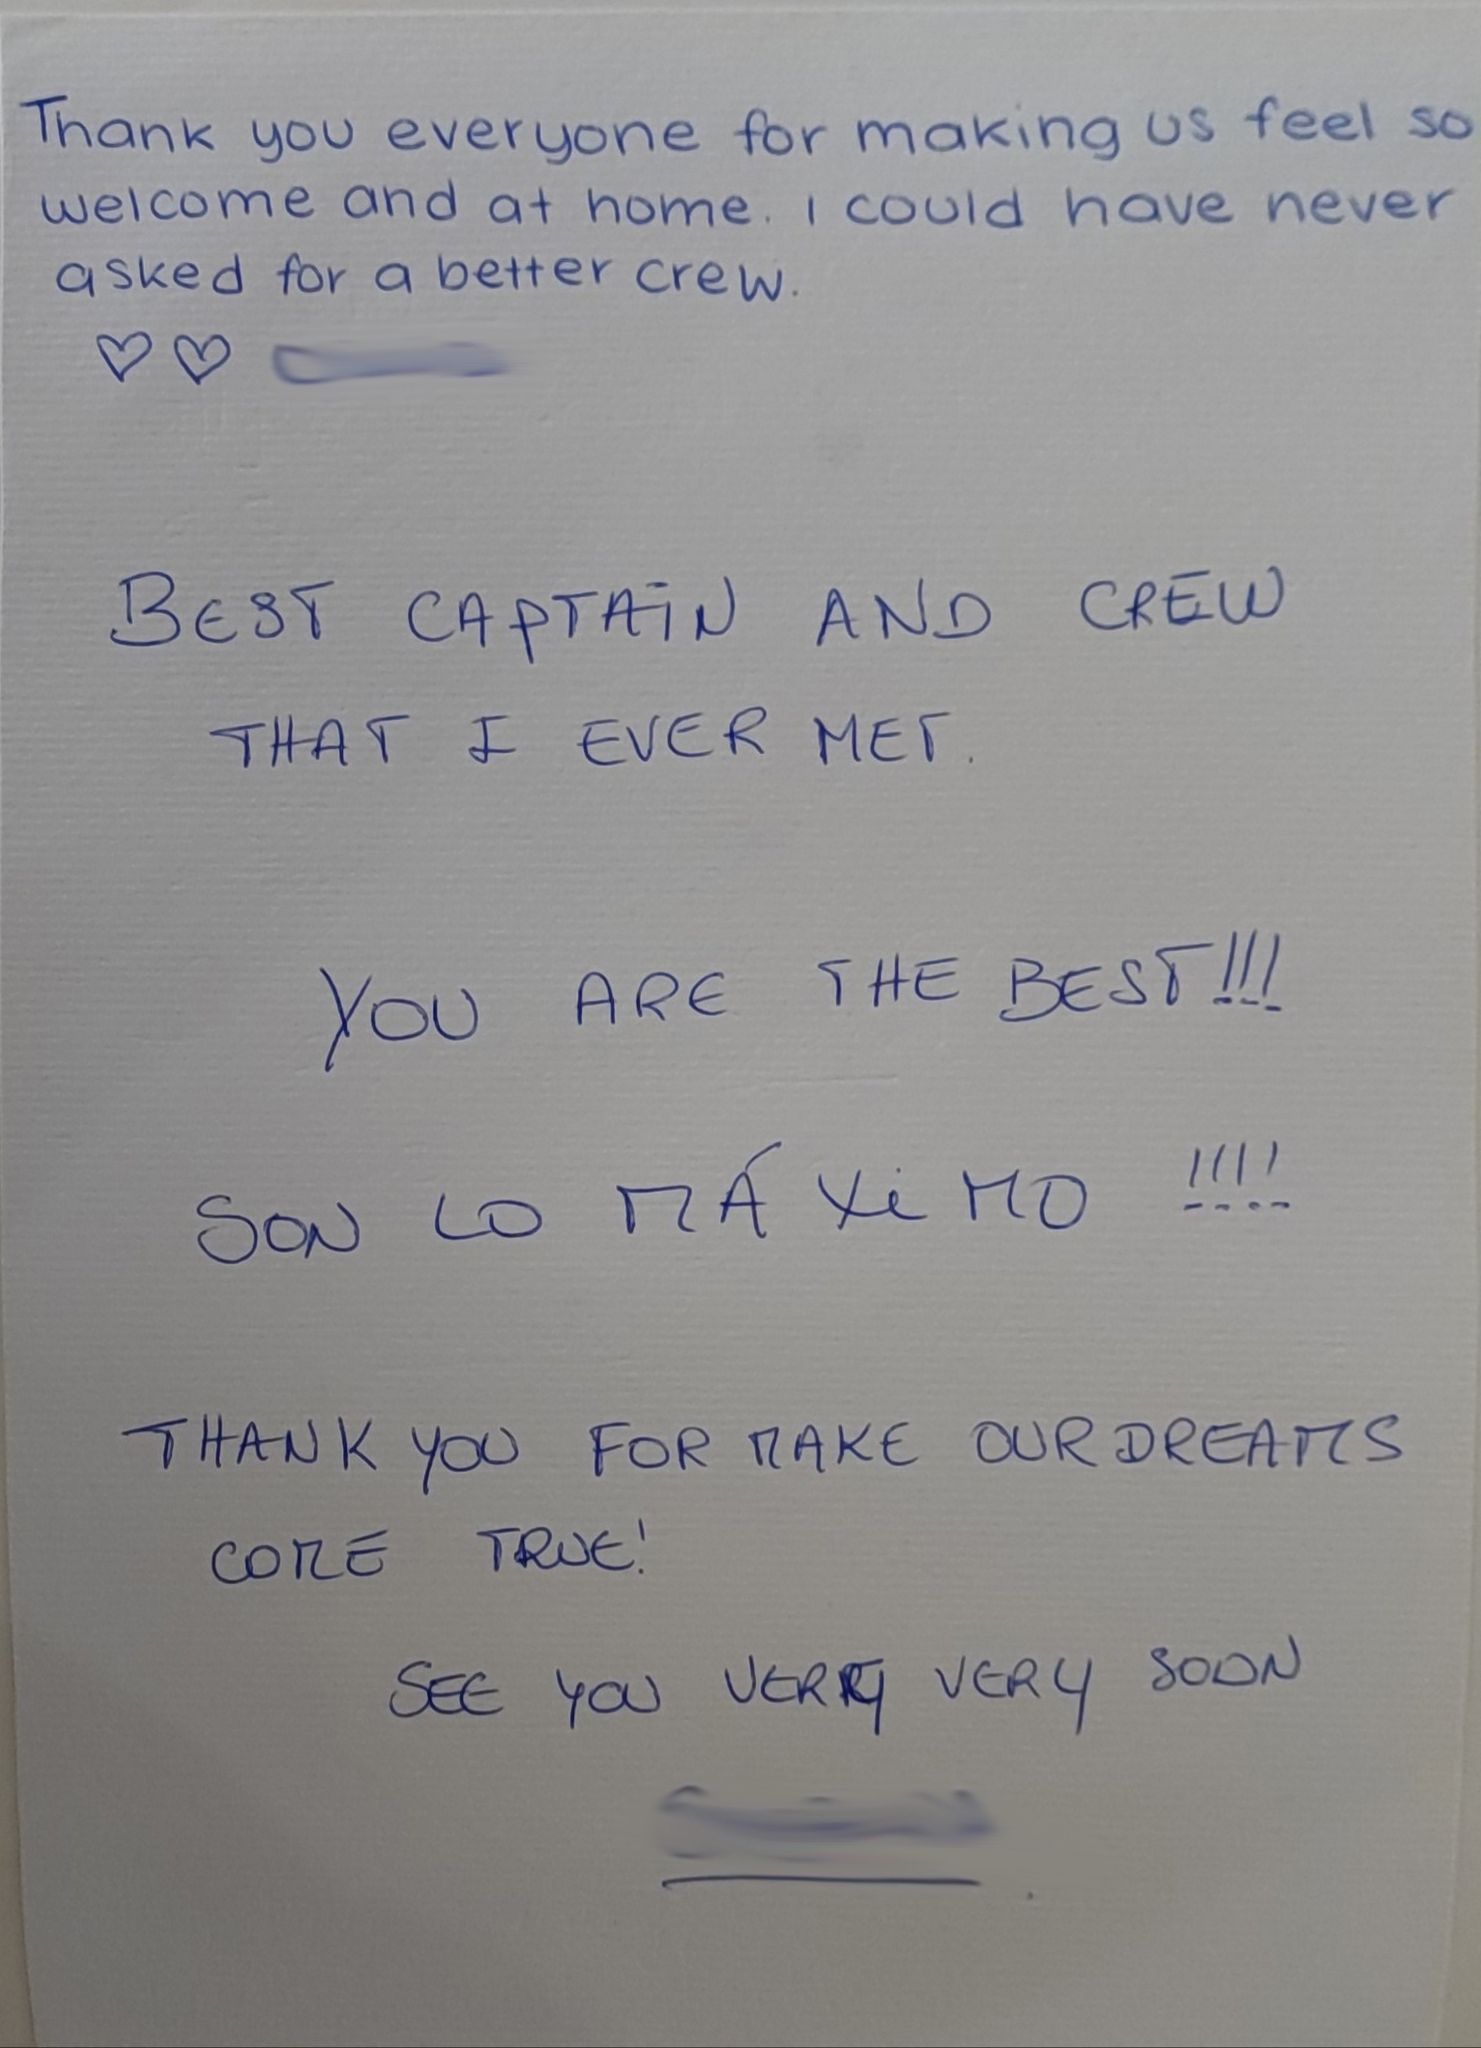 Thank you everyone for making us feel so
welcome and at home. I could have never
asked for a better crew.
♡♡
BEST CAPTAIN AND CREW
THAT I EVER MET.
YOU ARE THE BEST!!!
SON LO MÁXIMO !!!!
THANK YOU FOR MAKE OUR DREAMS
COME TRUE!
SEE YOU VERY VERY SOON